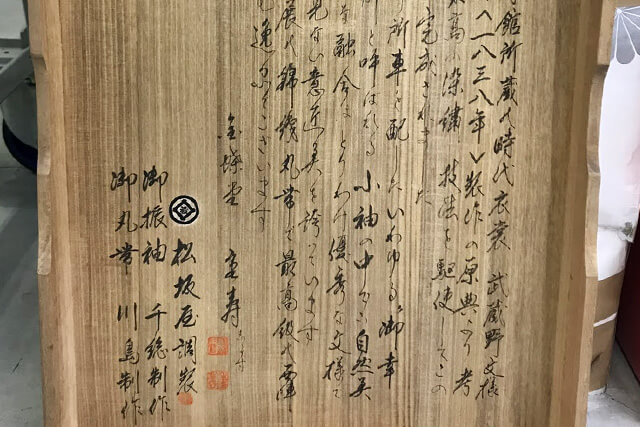 館所蔵の時代衣裳 武蔵野文様
八一八三八年〉製作の原典より考
最高の染繍技法を駆使してこの
完成されました
所車を配したいわゆる"御幸
と呼ばれる小袖の中から自然美
融合はとりわけ優秀な文様で
ない意匠美を誇っています
展の錦織丸帯で最高級の
逸品でございます
松坂屋調製
御振袖 千總制作
御丸帯 川島制作